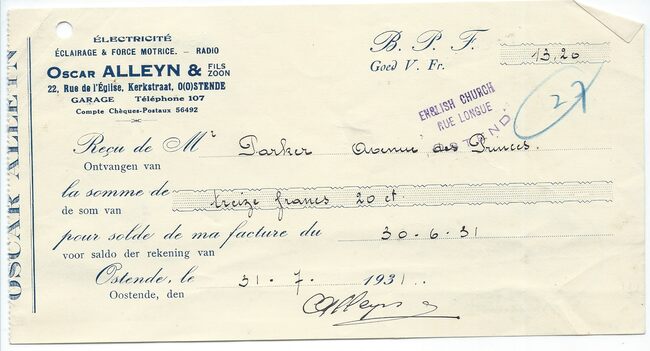 ÉLECTRICITÉ
ÉCLAIRAGE & FORCE MOTRICE. — RADIO
OSCAR ALLEYN & FILS ZOON
22, Rue de l'Église, Kerkstraat, O(O)STENDE
GARAGE Téléphone 107
Compte Chèques-Postaux 56492
B. P. F. 13,20
Goed V. Fr.
ENGLISH CHURCH
RUE LONGUE
OSTEND
27
Reçu de Mr Parker Avenue des Princes.
Ontvangen van
la somme de treize francs 20 ct
de som van
pour solde de ma facture du 30-6-31
voor saldo der rekening van
Ostende, le 31-7-1931
Oostende, den
Alleyn
OSCAR ALLEYN